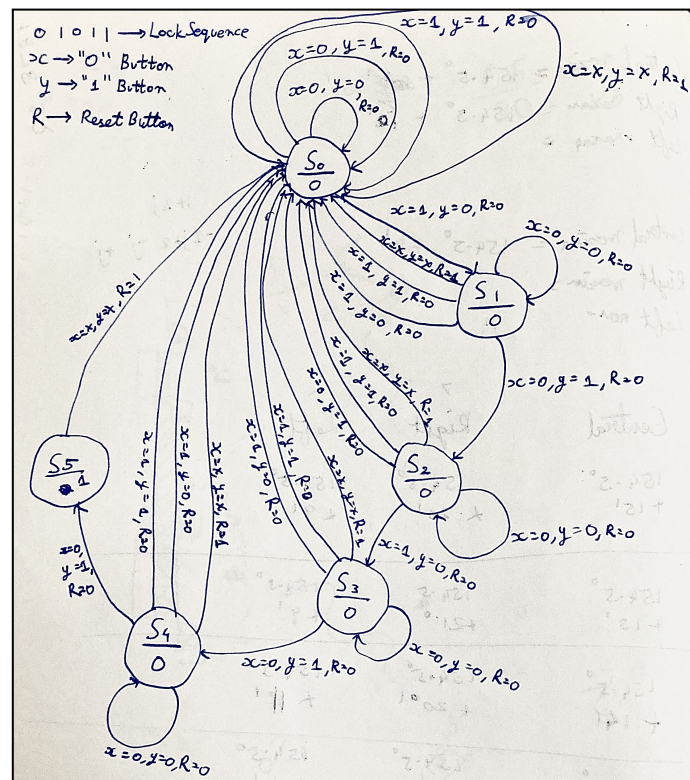 0 1 0 1 1 → Lock Sequence
x → "0" Button
y → "1" Button
R → Reset Button
x=1, y=1, R=0
x=0, y=1, R=0
x=0, y=0, R=0
x=x, y=x, R=1
S0
0
x=1, y=0, R=0
x=x, y=x, R=1
x=1, y=1, R=0
x=1, y=0, R=0
x=0, y=0, R=0
S1
0
x=0, y=1, R=0
x=x, y=x, R=1
x=1, y=1, R=0
x=0, y=1, R=0
S2
0
x=0, y=0, R=0
x=1, y=0, R=0
x=x, y=x, R=1
x=1, y=1, R=0
x=1, y=0, R=0
S3
0
x=0, y=0, R=0
x=0, y=1, R=0
x=x, y=x, R=1
x=1, y=0, R=0
x=1, y=1, R=0
S4
0
x=0, y=0, R=0
x=0,
y=1,
R=0
S5
1
x=x, y=x, R=1